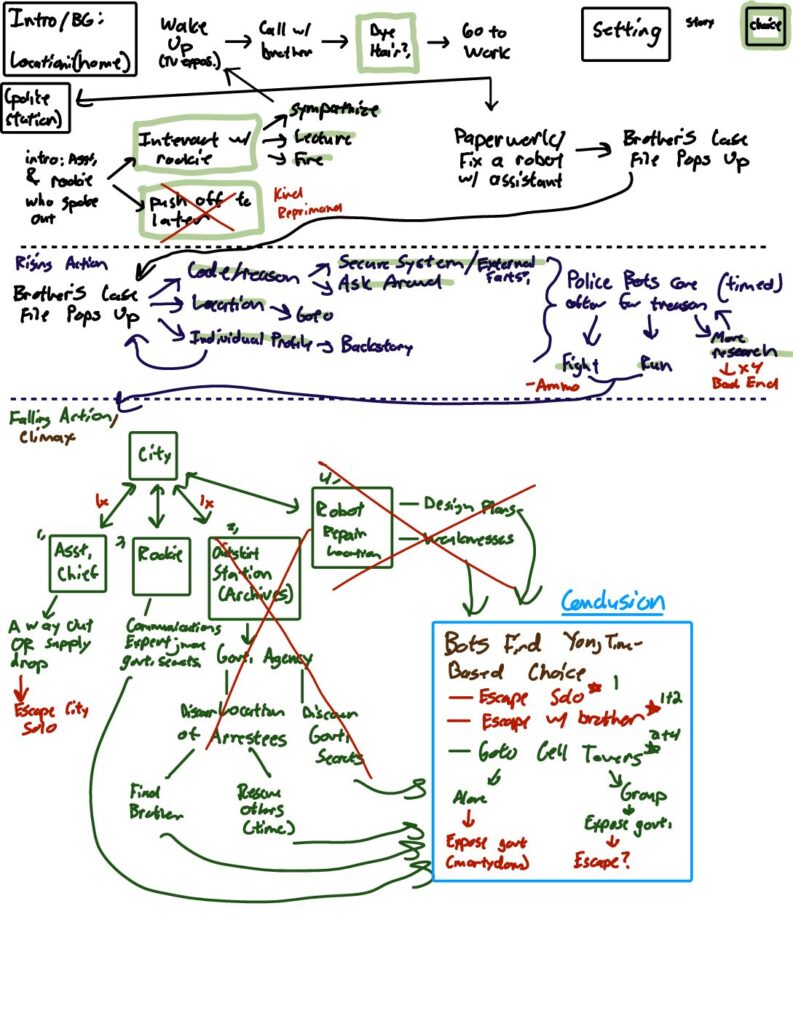 Intro/BG:
Location:(home)
Wake
Up
(TV expos.)
Call w/
brother
Dye
Hair?
Go to
Work
Setting
Story
choice
(police
station)
intro: Asst,
& rookie
who spoke
out
Interact w/
rookie
Sympathize
Lecture
Fire
push off to
later
Kind
Reprimand
Paperwork/
Fix a robot
w/ assistant
Brother's Case
File Pops Up
Rising Action
Brother's Case
File Pops Up
Code/reason
Secure System/External
Parts?
Ask Around
Location
GoTo
Individual Profile
Backstory
Police Bots come (timed)
after for treason
Fight
-Ammo
Run
More
research
x4
Bad End
Falling Action,
Climax
City
1x
1x
1,
Asst,
Chief
2,
Rookie
3,
Outskirt
Station
(Archives)
4,
Robot
Repair
Location
Design Plans
Weaknesses
A way out
OR supply
drop
Escape City
Solo
Communications
Expert, more
govt. secrets
Govt. Agency
Location
of Arrestees
Discover
Govt.
Secrets
Find
Brother
Rescue
others
(time)
Conclusion
Bots Find You, Time-
Based Choice
— Escape Solo 1
— Escape w/ brother 1+2
— Goto Cell Towers 2+4
Alone
Expose govt
(martyrdom)
Group
Expose govt.
Escape?